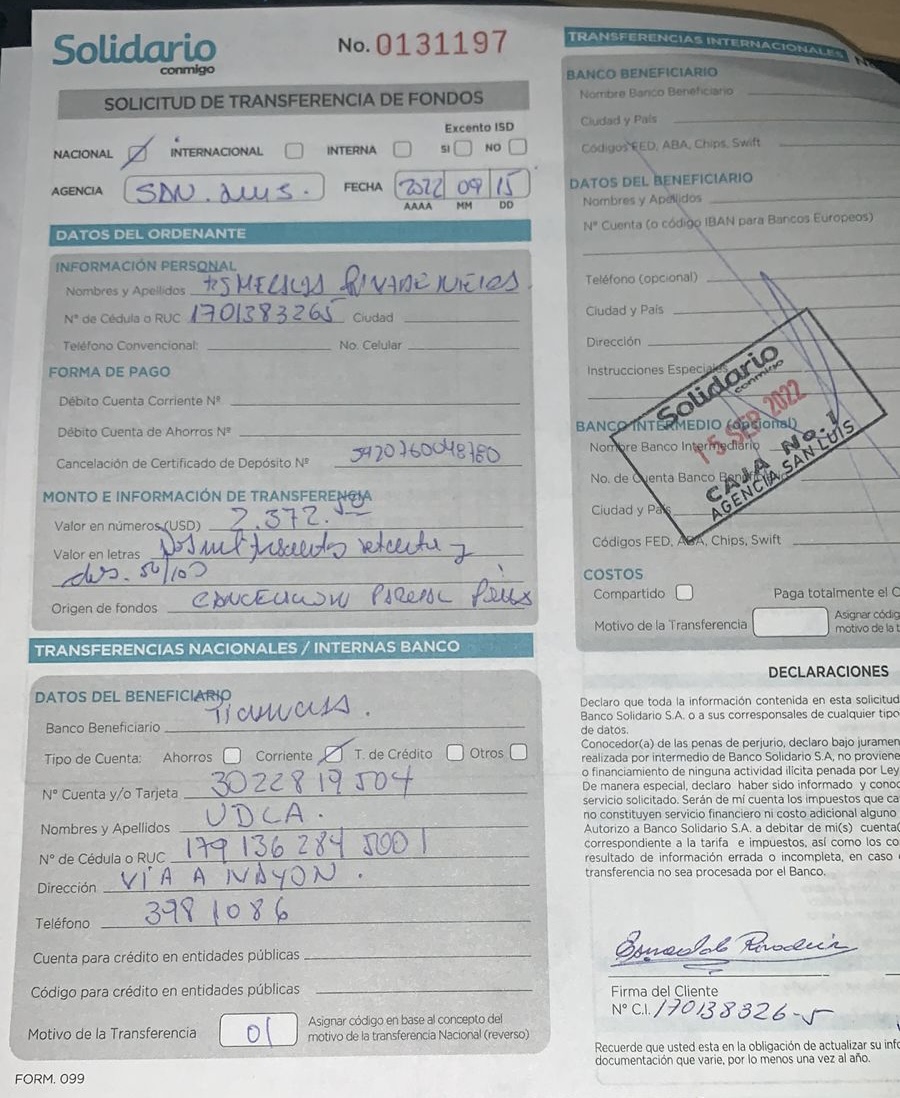 Solidario
conmigo
No. 0131197
SOLICITUD DE TRANSFERENCIA DE FONDOS
Excento ISD
NACIONAL INTERNACIONAL INTERNA SI NO
AGENCIA SAN. LUIS. FECHA 2022 09 15
AAAA MM DD
DATOS DEL ORDENANTE
INFORMACIÓN PERSONAL
Nombres y Apellidos
N° de Cédula o RUC 1701383265 Ciudad
Teléfono Convencional: No. Celular
FORMA DE PAGO
Débito Cuenta Corriente N°
Débito Cuenta de Ahorros N°
Cancelación de Certificado de Depósito N°
MONTO E INFORMACIÓN DE TRANSFERENCIA
Valor en números (USD) 2.372.50
Valor en letras Dos mil trescientos setenta y
dos. 50/100
Origen de fondos
TRANSFERENCIAS NACIONALES / INTERNAS BANCO
DATOS DEL BENEFICIARIO
Banco Beneficiario
Tipo de Cuenta: Ahorros Corriente T. de Crédito Otros
N° Cuenta y/o Tarjeta 3022819504
Nombres y Apellidos UDLA.
N° de Cédula o RUC 179 136 284 5001
Dirección VIA A NAYON.
Teléfono 3981086
Cuenta para crédito en entidades públicas
Código para crédito en entidades públicas
Motivo de la Transferencia 01 Asignar código en base al concepto del
motivo de la transferencia Nacional (reverso)
FORM. 099
TRANSFERENCIAS INTERNACIONALES
BANCO BENEFICIARIO
Nombre Banco Beneficiario
Ciudad y País
Códigos FED, ABA, Chips, Swift
DATOS DEL BENEFICIARIO
Nombres y Apellidos
N° Cuenta (o código IBAN para Bancos Europeos)
Teléfono (opcional)
Ciudad y País
Dirección
Instrucciones Especiales
BANCO INTERMEDIO (opcional)
Nombre Banco Intermediario
No. de Cuenta Banco
Ciudad y País
Códigos FED, ABA, Chips, Swift
Solidario
conmigo
15 SEP 2022
CAJA No. 1
AGENCIA SAN LUIS
COSTOS
Compartido Paga totalmente el
Motivo de la Transferencia Asignar códig
motivo de la t
DECLARACIONES
Declaro que toda la información contenida en esta solicitud
Banco Solidario S.A. o a sus corresponsales de cualquier tipo
de datos.
Conocedor(a) de las penas de perjurio, declaro bajo juramen
realizada por intermedio de Banco Solidario S.A, no proviene
o financiamiento de ninguna actividad ilícita penada por Ley
De manera especial, declaro haber sido informado y conoc
servicio solicitado. Serán de mí cuenta los impuestos que ca
no constituyen servicio financiero ni costo adicional alguno
Autorizo a Banco Solidario S.A. a debitar de mi(s) cuenta(
correspondiente a la tarifa e impuestos, así como los co
resultado de información errada o incompleta, en caso
transferencia no sea procesada por el Banco.
Firma del Cliente
N° C.I. 170138326-5
Recuerde que usted esta en la obligación de actualizar su info
documentación que varie, por lo menos una vez al año.